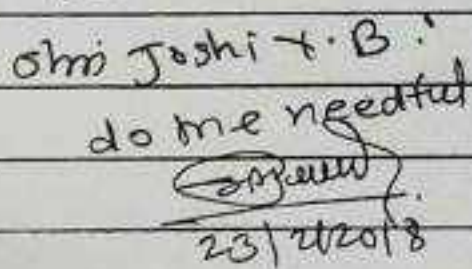 Shri Joshi Y. B.
do the needful
23/2/2018